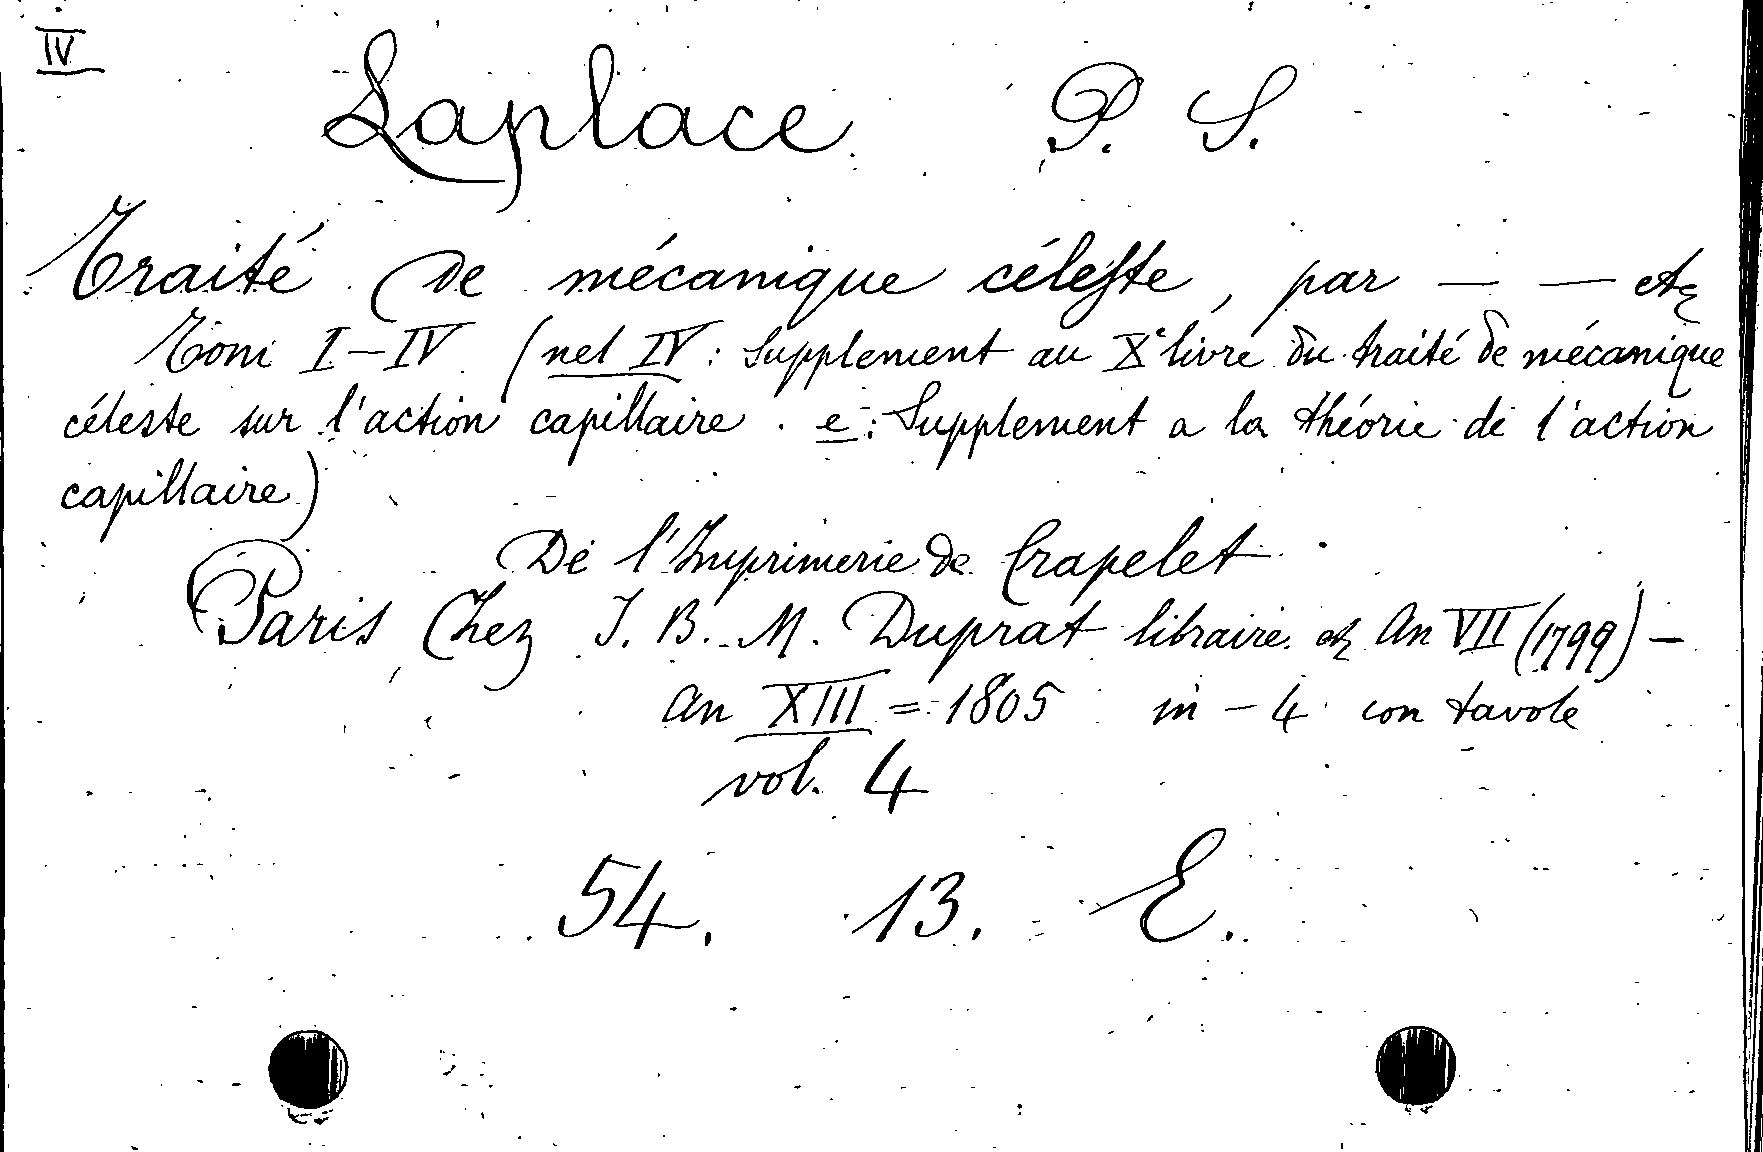 IV
Laplace P. S.
Traité de mécanique céleste, par — — etc
Tomi I-IV (nel IV: Supplement au Xe livre du traité de mécanique
céleste sur l'action capillaire. e: Supplement a la théorie de l'action
capillaire)
De l'Imprimerie de Crapelet
Paris Chez J. B. M. Duprat libraire etc An VII (1799) —
An XIII = 1805 in-4 con tavole
vol. 4
54. 13. E.